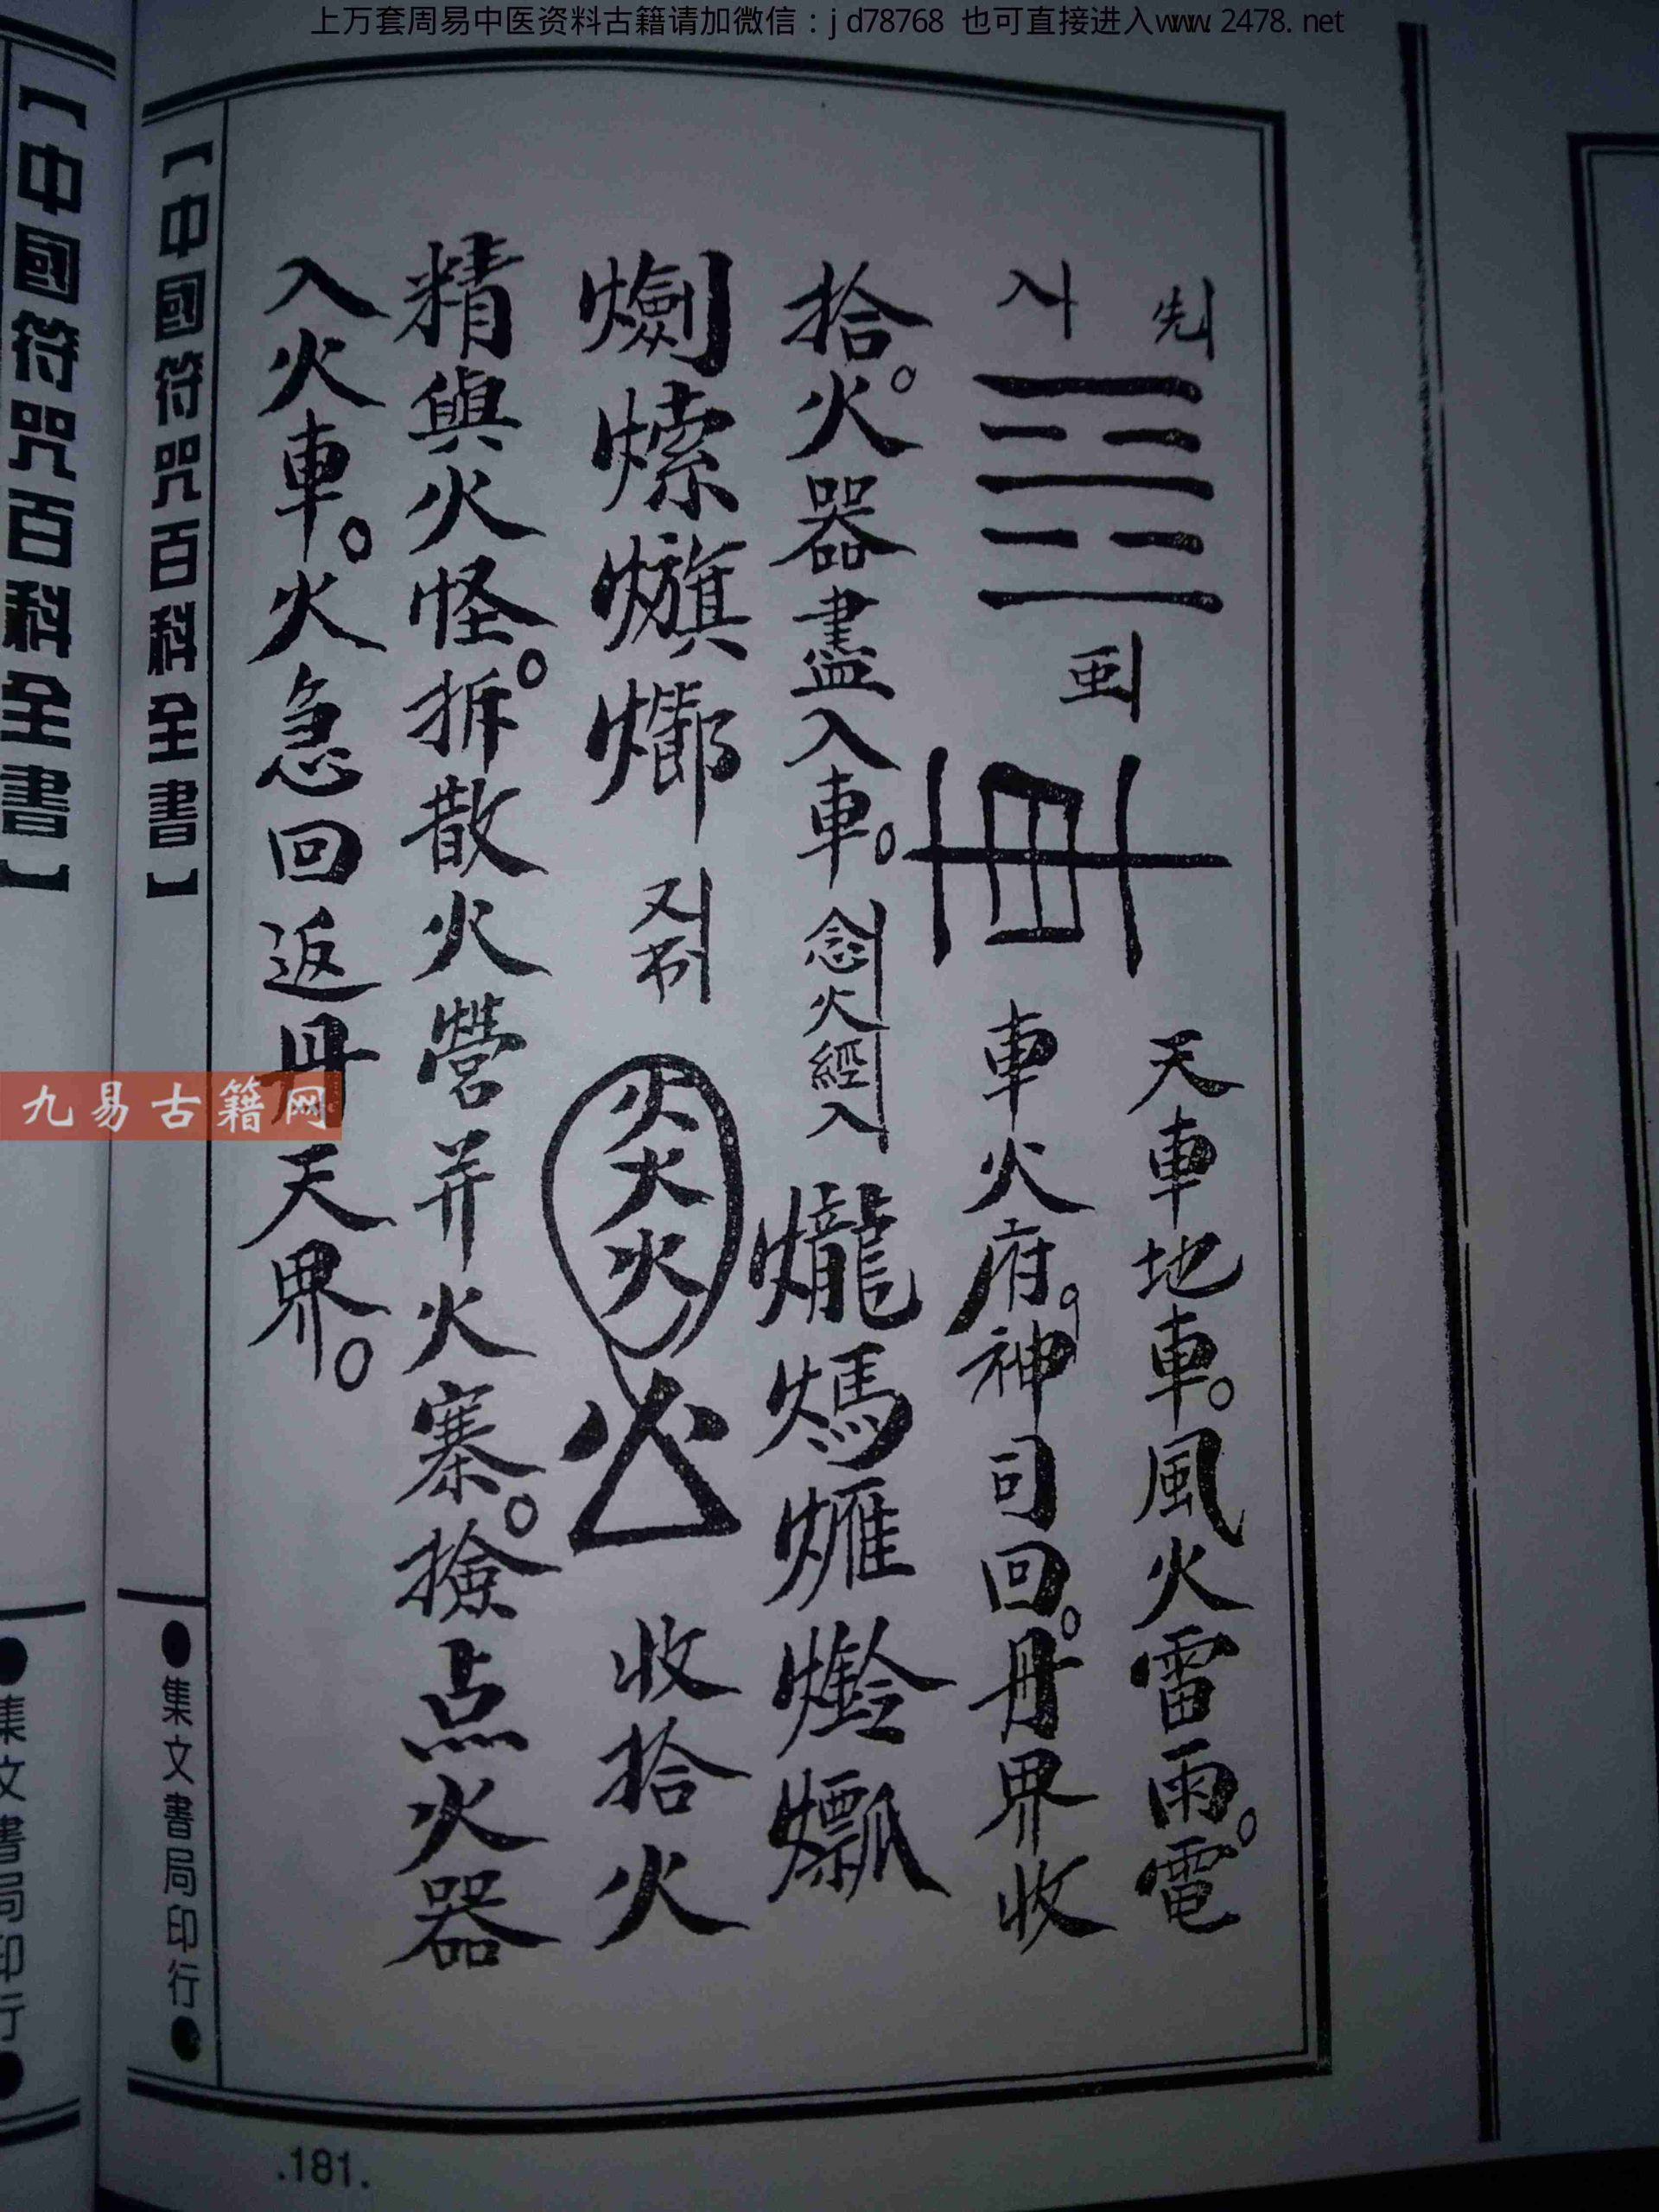 上万套周易中医资料古籍请加微信：jd78768 也可直接进入www.2478.net
先
入
天車地車。風火雷雨。電
車火府。神司回。丹界收
拾。火器盡入車。念火經入 爖 熓
收拾火
又
火火火
精與火怪。拆散火營并火寨。撿点火器
入火車。火急回返丹天界。
【中國符咒百科全書】
●集文書局印行●
.181.
【中國符咒百科全書】
●集文書局印行●
九易古籍网